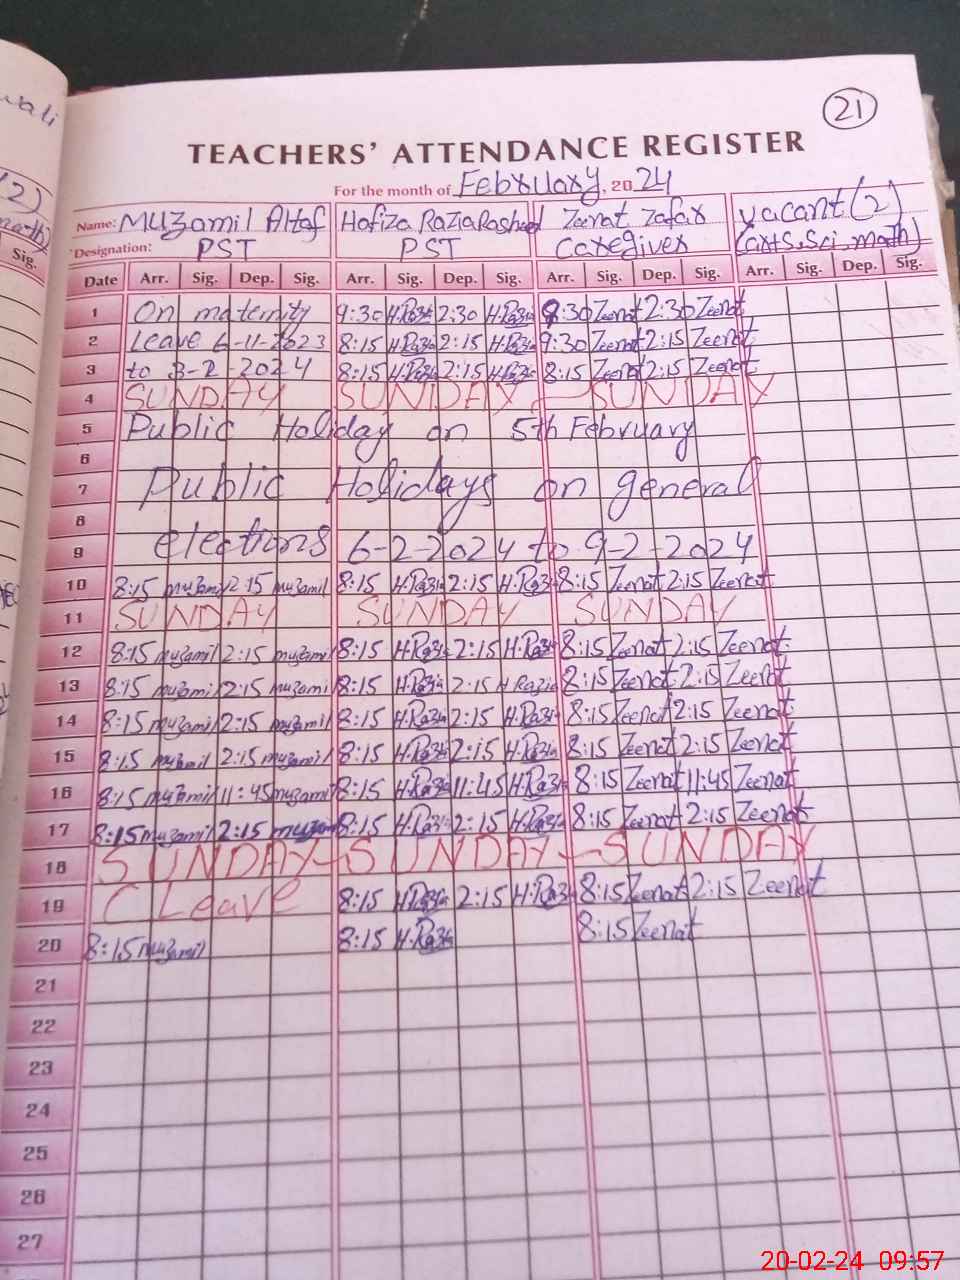 21
TEACHERS' ATTENDANCE REGISTER
For the month of February, 2024
Name: Muzamil Altaf Hafiza Razia Rasheed Zeenat Zafar vacant (2)
Designation: PST PST Caregiver (arts, sci, math)
Date Arr. Sig. Dep. Sig. Arr. Sig. Dep. Sig. Arr. Sig. Dep. Sig. Arr. Sig. Dep. Sig.
1 On maternity 9:30 H.Razia 2:30 H.Razia 9:30 Zeenat 2:30 Zeenat
2 Leave 6-11-2023 8:15 H.Razia 2:15 H.Razia 9:30 Zeenat 2:15 Zeenat
3 to 3-2-2024 8:15 H.Razia 2:15 H.Razia 8:15 Zeenat 2:15 Zeenat
4 SUNDAY SUNDAY - SUNDAY
5 Public Holiday on 5th February
6
7 Public Holidays on general
8
9 elections 6-2-2024 to 9-2-2024
10 8:15 muzamil 2:15 muzamil 8:15 H.Razia 2:15 H.Razia 8:15 Zeenat 2:15 Zeenat
11 SUNDAY SUNDAY SUNDAY
12 8:15 muzamil 2:15 muzamil 8:15 H.Razia 2:15 H.Razia 8:15 Zeenat 2:15 Zeenat
13 8:15 muzamil 2:15 muzamil 8:15 H.Razia 2:15 H Razia 8:15 Zeenat 2:15 Zeenat
14 8:15 muzamil 2:15 muzamil 8:15 H.Razia 2:15 H.Razia 8:15 Zeenat 2:15 Zeenat
15 8:15 muzamil 2:15 muzamil 8:15 H.Razia 2:15 H.Razia 8:15 Zeenat 2:15 Zeenat
16 8:15 muzamil 11:45 muzamil 8:15 H.Razia 11:45 H.Razia 8:15 Zeenat 11:45 Zeenat
17 8:15 muzamil 2:15 muzamil 8:15 H.Razia 2:15 H.Razia 8:15 Zeenat 2:15 Zeenat
18 SUNDAY - SUNDAY - SUNDAY
19 C Leave 8:15 H.Razia 2:15 H.Razia 8:15 Zeenat 2:15 Zeenat
20 8:15 muzamil 8:15 H.Razia 8:15 Zeenat
21
22
23
24
25
26
27
(2)
Sig.
20-02-24 09:57